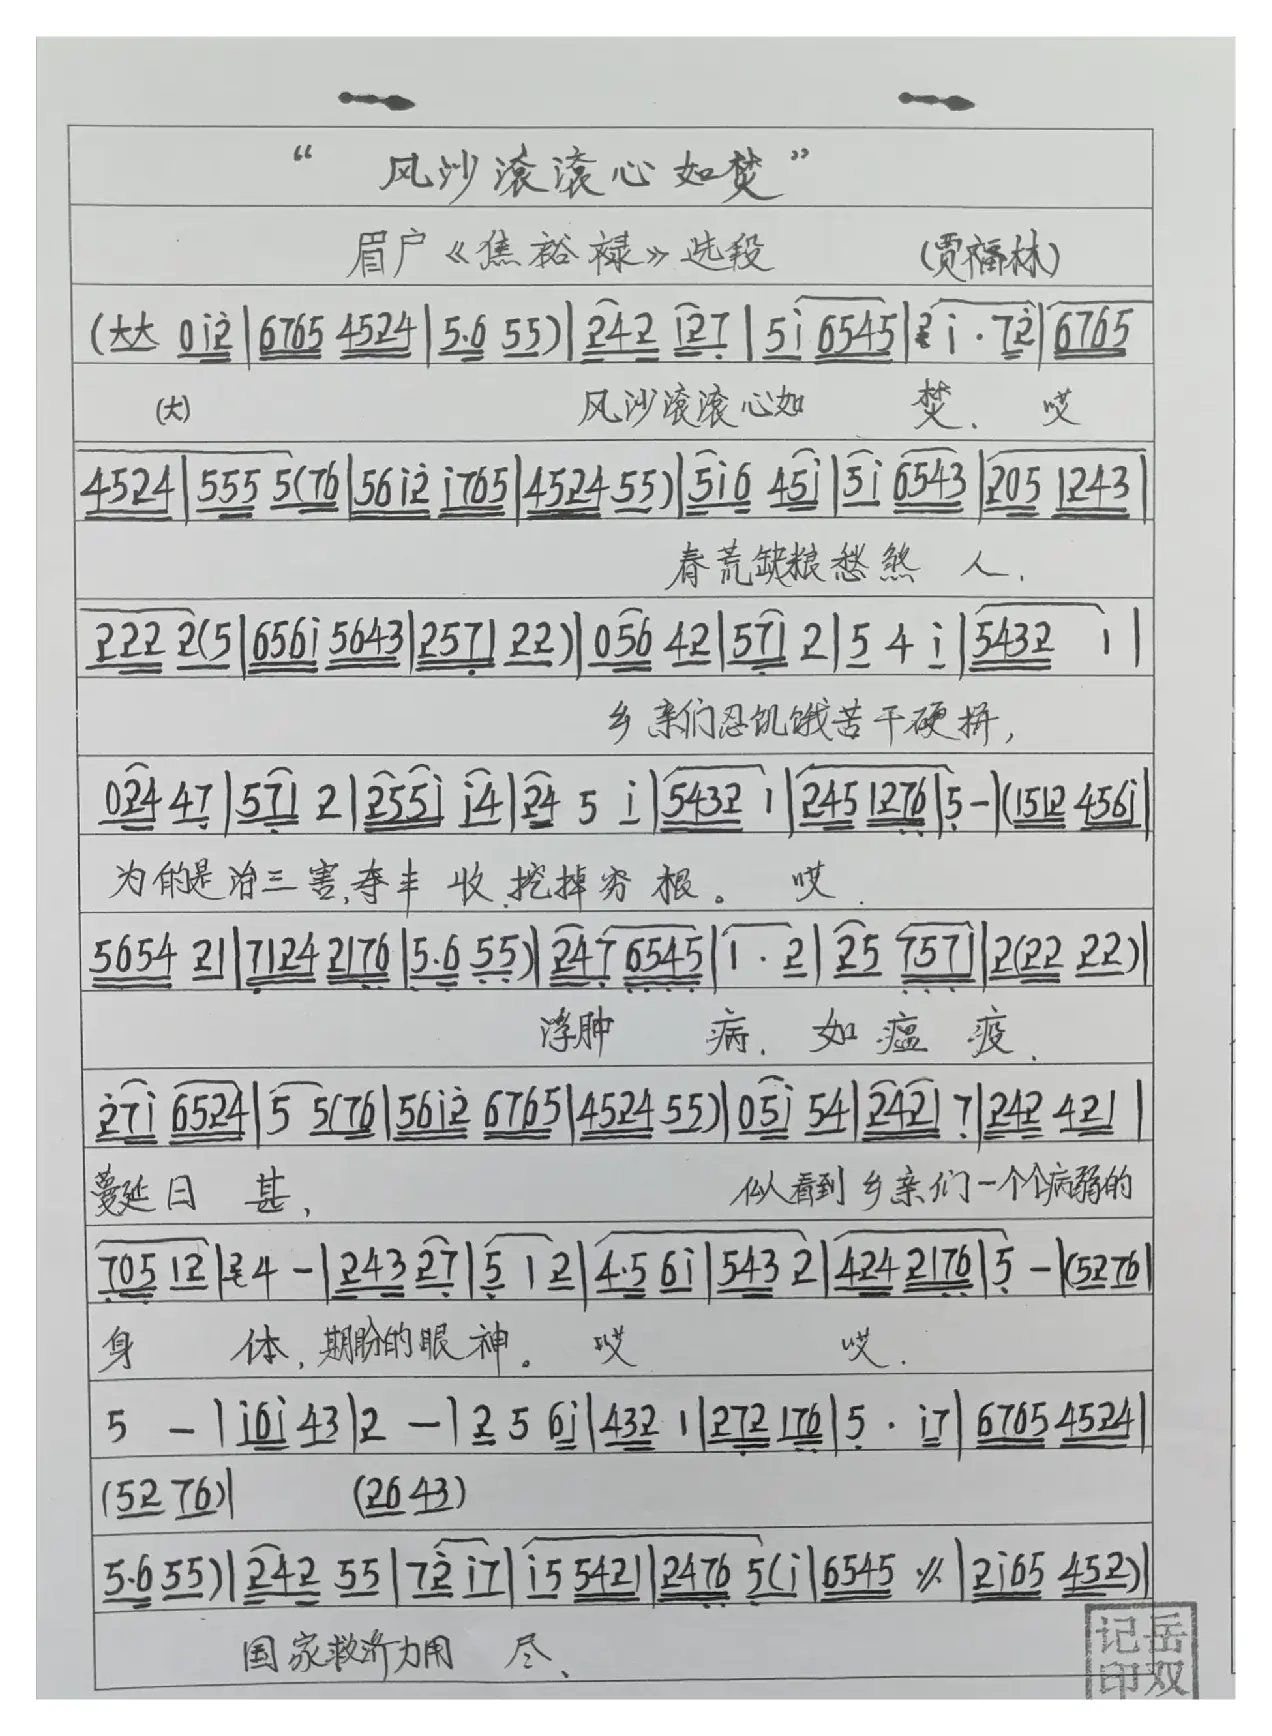 “风沙滚滚心如焚”
眉户《焦裕禄》选段 (贾福林)
(大大 0i2|6765 4524|5.6 55)|242 127|5i 6545|i·72|6765
(大) 风沙滚滚心如 焚、哎
4524|555 5(76|56i2 i765|4524 55)|5i6 45i|5i 6543|205 1243|
春荒缺粮愁煞 人、
222 2(5|656i 5643|2571 22)|056 42|571 2|5 4 i|5432 1|
乡亲们忍饥饿苦干硬拼,
024 47|571 2|255i i4|24 5 i|5432 1|245 1276|5-|(1512 456i|
为的是治三害,夺丰 收,挖掉穷 根。 哎.
5654 21|7124 2176|5.6 55)|247 6545|1·2|25 7571|2(22 22)|
浮肿 病、如瘟 疫、
27i 6524|5 5(76|56i2 6765|4524 55)|05i 54|2421 7|242 421|
蔓延日 甚, 似看到乡亲们一个个病弱的
705 12|4-|243 27|5 1 2|4.5 6i|543 2|424 2176|5-|(5276|
身 体,期盼的眼神。哎 哎.
5 -|i6i 43|2 -|2 5 6i|432 1|272 176|5·i7|6765 4524|
(52 76)| (26 43)
5.6 55)|242 55|72 i7|i5 5421|2476 5(i|6545 〃|2i65 452)|
国家救济力用 尽、
记岳
印双